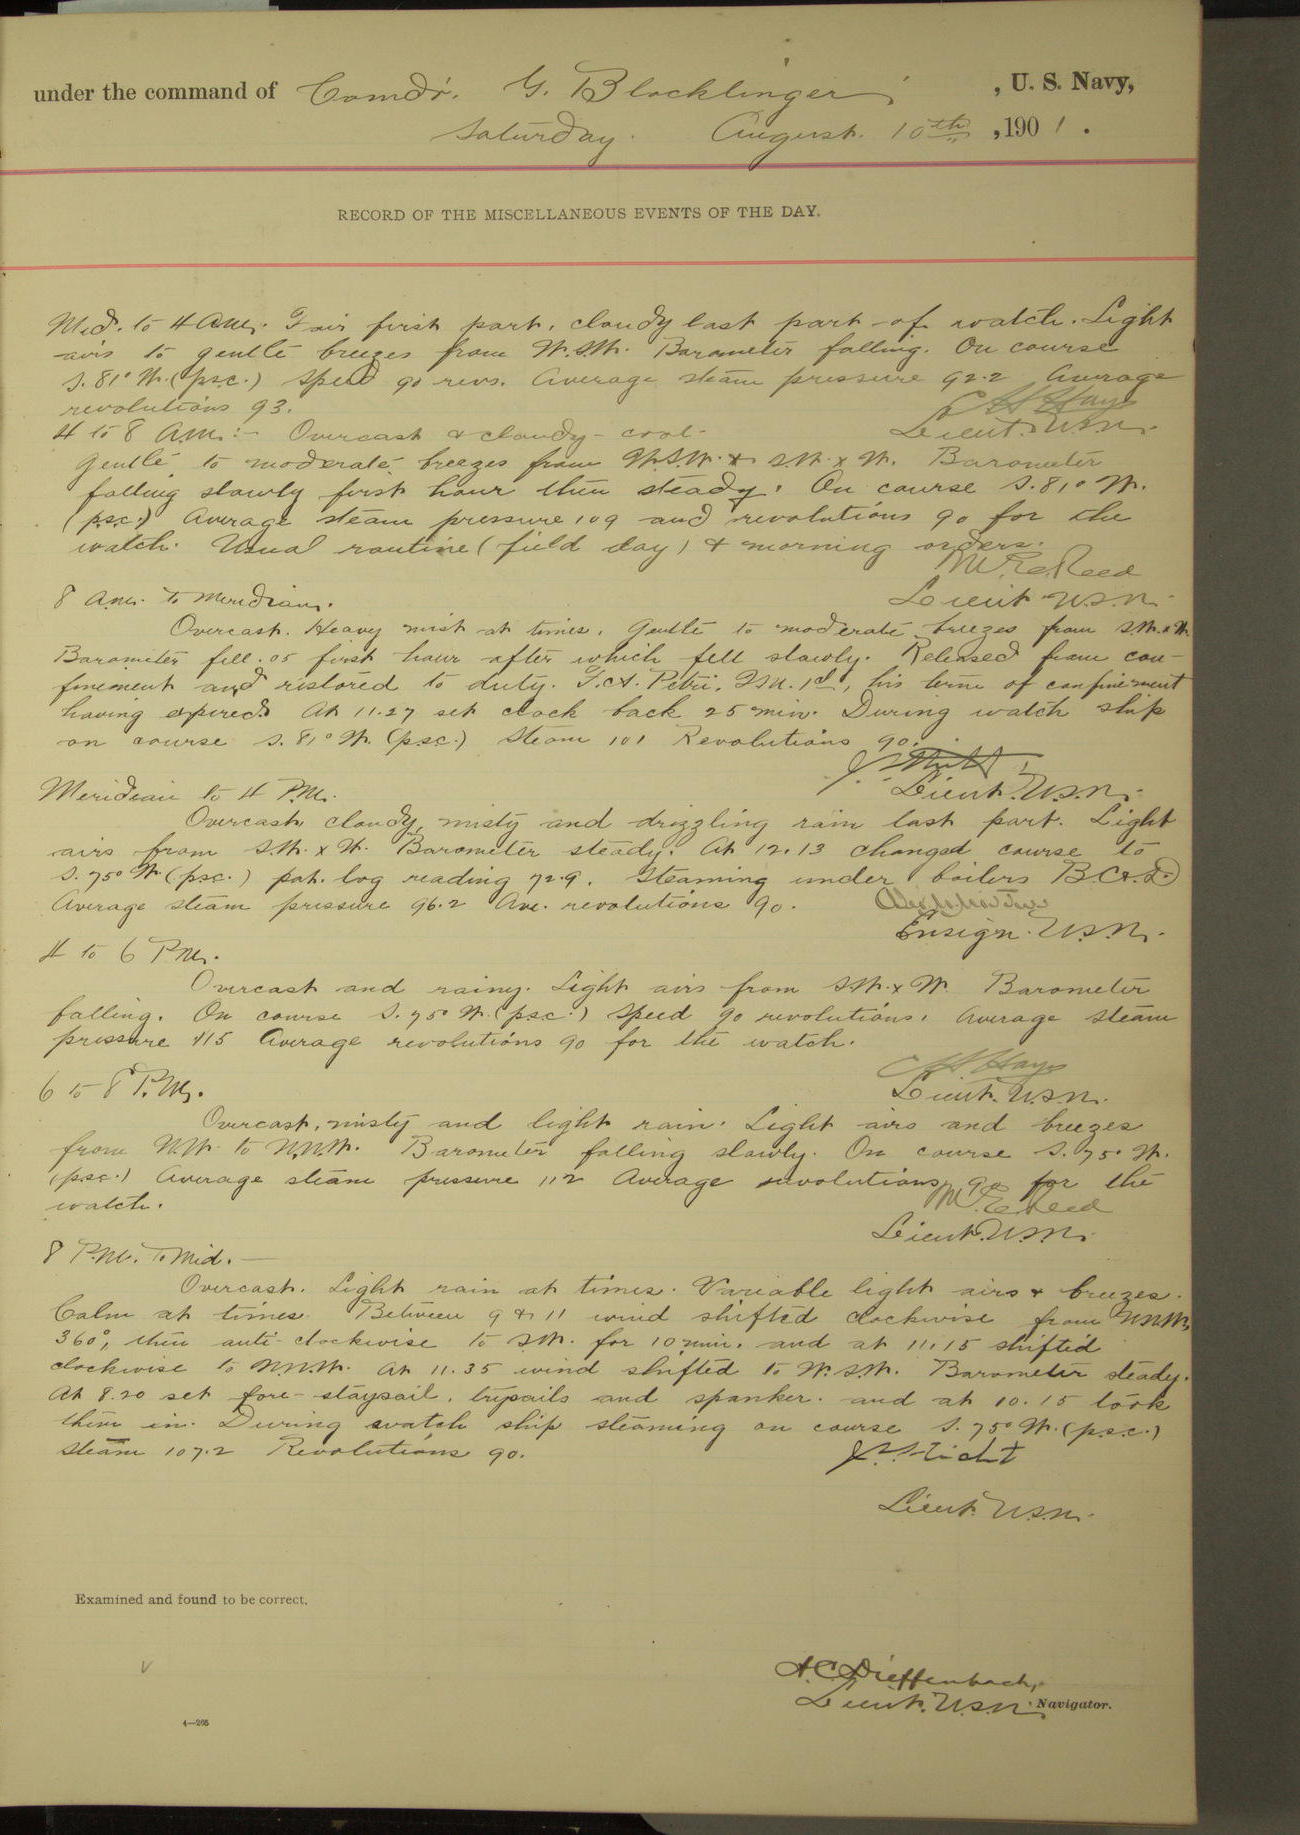 under the command of Comdr. G. Blocklinger, U. S. Navy,
Saturday. August. 10th, 1901.
RECORD OF THE MISCELLANEOUS EVENTS OF THE DAY.
Mid. to 4 A.M. Fair first part, cloudy last part of watch. Light
airs to gentle breezes from W.S.W. Barometer falling. On course
S. 81° W. (p.s.c.) Speed 90 revs. Average steam pressure 92.2 Average
revolutions 93.
Hays
Lieut. U.S.N.
4 to 8 A.M.:- Overcast & cloudy - cool -
Gentle to moderate breezes from W.S.W. & S.W. x W. Barometer
falling slowly first hour then steady. On course S. 81° W.
(p.s.c.) Average steam pressure 109 and revolutions 90 for the
watch. Usual routine (field day) & morning orders.
M. E. Reed
Lieut. U.S.N.
8 A.M. to Meridian.
Overcast. Heavy mist at times. Gentle to moderate breezes from S.W. x W.
Barometer fell .05 first hour after which fell slowly. Released from con-
finement and restored to duty. Petri, his term of confinement
having expired. At 11.27 set clock back 25 min. During watch ship
on course S. 81° W. (p.s.c.) Steam 101 Revolutions 90.
Lieut. U.S.N.
Meridian to 4 P.M.
Overcast, cloudy, misty and drizzling rain last part. Light
airs from S.W. x W. Barometer steady. At 12.13 changed course to
S. 75° W. (p.s.c.) pat. log reading 72.9. Steaming under boilers B.C.& D.
Average steam pressure 96.2 Ave. revolutions 90.
Ensign. U.S.N.
4 to 6 P.M.
Overcast and rainy. Light airs from S.W. x W. Barometer
falling. On course S. 75° W. (p.s.c.) Speed 90 revolutions. Average steam
pressure 115 Average revolutions 90 for the watch.
Hays
Lieut. U.S.N.
6 to 8 P.M.
Overcast, misty and light rain. Light airs and breezes
from N.W. to N.N.W. Barometer falling slowly. On course S. 75° W.
(p.s.c.) Average steam pressure 112 Average revolutions 90 for the
watch.
M. E. Reed
Lieut. U.S.N.
8 P.M. to Mid. —
Overcast. Light rain at times. Variable light airs & breezes.
Calm at times. Between 9 & 11 wind shifted clockwise from N.N.W.,
360°, then anti-clockwise to S.W. for 10 min. and at 11.15 shifted
clockwise to N.N.W. At 11.35 wind shifted to W.S.W. Barometer steady.
At 8.20 set fore-staysail, trysails and spanker. and at 10.15 took
them in. During watch ship steaming on course S. 75° W. (p.s.c.)
Steam 107.2 Revolutions 90.
Lieut. U.S.N.
Examined and found to be correct.
A. C. Dieffenbach,
Lieut. U.S.N. Navigator.
4—205